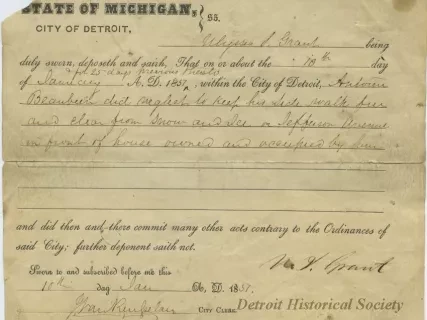 STATE OF MICHIGAN, } SS.
CITY OF DETROIT,
Ulysses S. Grant being
duly sworn, deposeth and saith, That on or about the 10th day
for 25 days previous thereto
of January A. D. 1851, within the City of Detroit, Antoine
Beaubien did neglect to keep his side walk free
and clear from snow and Ice on Jefferson Avenue
in front of house owned and occupied by him
and did then and there commit many other acts contrary to the Ordinances of
said City; further deponent saith not.
Sworn to and subscribed before me this
10th day Jan A. D. 1851.
U. S. Grant
CITY CLERK
Detroit Historical Society